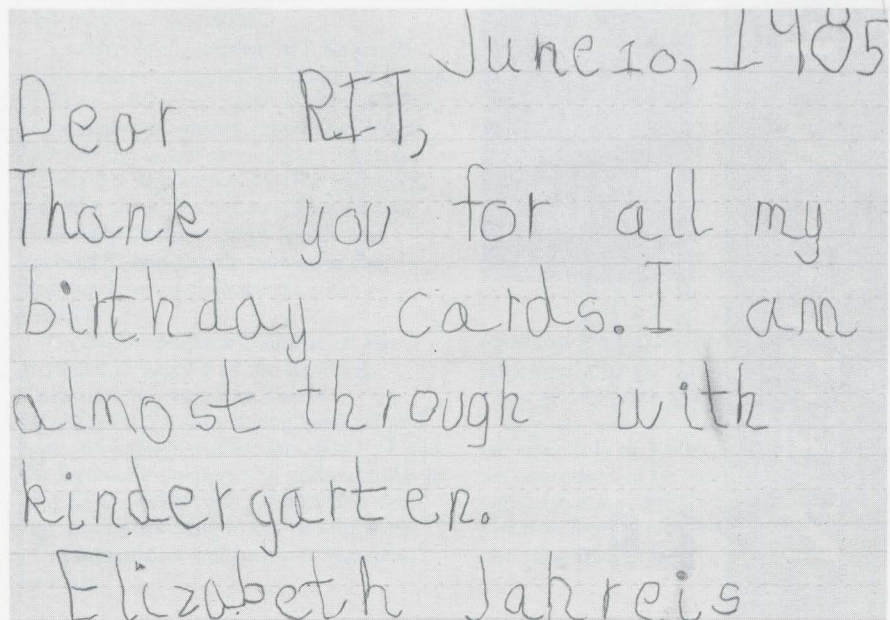 June 10, 1985
Dear RIT,
Thank you for all my
birthday cards. I am
almost through with
kindergarten.
Elizabeth Jahreis